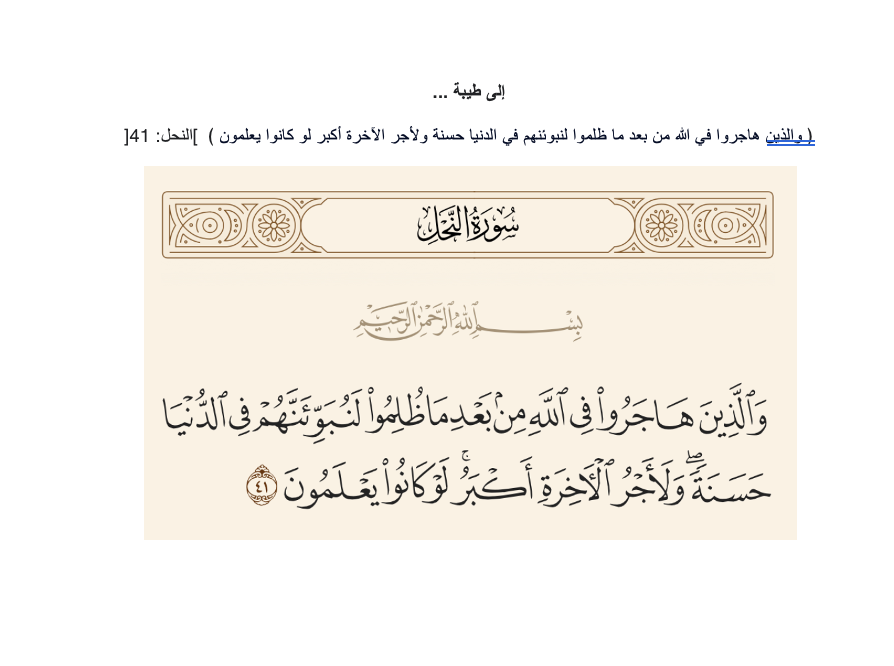 إلى طيبة ...
( والذين هاجروا في الله من بعد ما ظلموا لنبوئنهم في الدنيا حسنة ولأجر الآخرة أكبر لو كانوا يعلمون ) ]النحل: 41[
سُورَةُ النَّحۡلِ
بِسۡمِ ٱللَّهِ ٱلرَّحۡمَٰنِ ٱلرَّحِيمِ
وَٱلَّذِينَ هَاجَرُواْ فِي ٱللَّهِ مِنۢ بَعۡدِ مَا ظُلِمُواْ لَنُبَوِّئَنَّهُمۡ فِي ٱلدُّنۡيَا
حَسَنَةٗۖ وَلَأَجۡرُ ٱلۡأٓخِرَةِ أَكۡبَرُۚ لَوۡ كَانُواْ يَعۡلَمُونَ ٤١